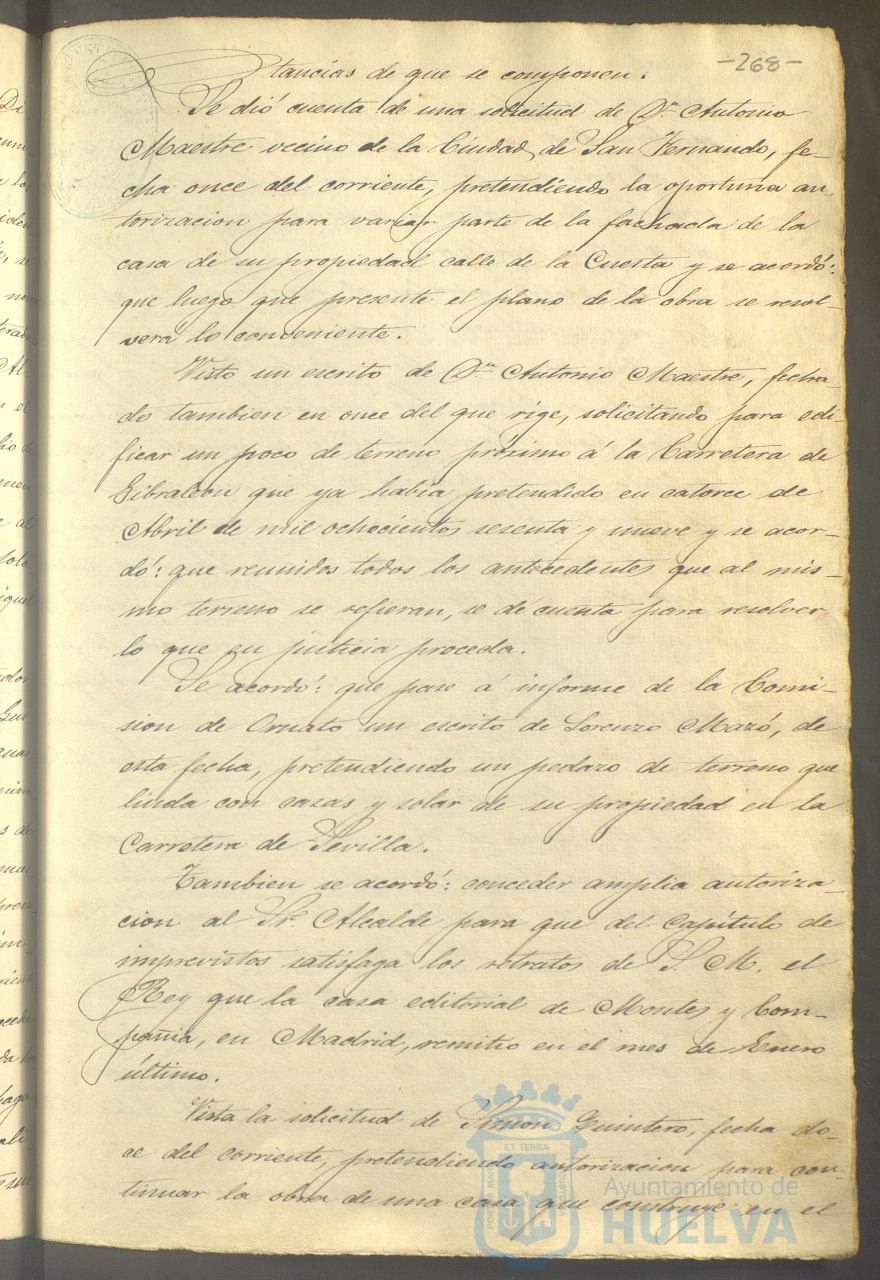 -268-
tancias de que se componen.
Se dió cuenta de una solicitud de Dn. Antonio
Maestre vecino de la Ciudad de San Fernando, fe-
cha once del corriente, pretendiendo la oportuna au-
torizacion para variar parte de la fachada de la
casa de su propiedad calle de la Cuesta y se acordó:
que luego que presente el plano de la obra se resol-
vera lo conveniente.
Visto un escrito de Dn. Antonio Maestre, fecha-
do tambien en once del que rige, solicitando para edi-
ficar un poco de terreno próximo á la Carretera de
Gibraleon que ya habia pretendido en catorce de
Abril de mil ochocientos sesenta y nueve y se acor-
dó: que reunidos todos los antecedentes que al mis-
mo terreno se refieran, se dé cuenta para resolver
lo que en justicia proceda.
Se acordó: que pase á informe de la Comi-
sion de Ornato un escrito de Lorenzo Mazó, de
esta fecha, pretendiendo un pedazo de terreno que
linda con casas y solar de su propiedad en la
Carretera de Sevilla.
Tambien se acordó: conceder amplia autoriza-
cion al Sr. Alcalde para que del Capítulo de
imprevistos satisfaga los retratos de S. M. el
Rey que la casa editorial de Montes y Com-
pañia, en Madrid, remitio en el mes de Enero
último.
Vista la solicitud de Simon Quintero, fecha do-
ce del corriente, pretendiendo autorizacion para con-
tinuar la obra de una casa que construye en el
Ayuntamiento de
HUELVA